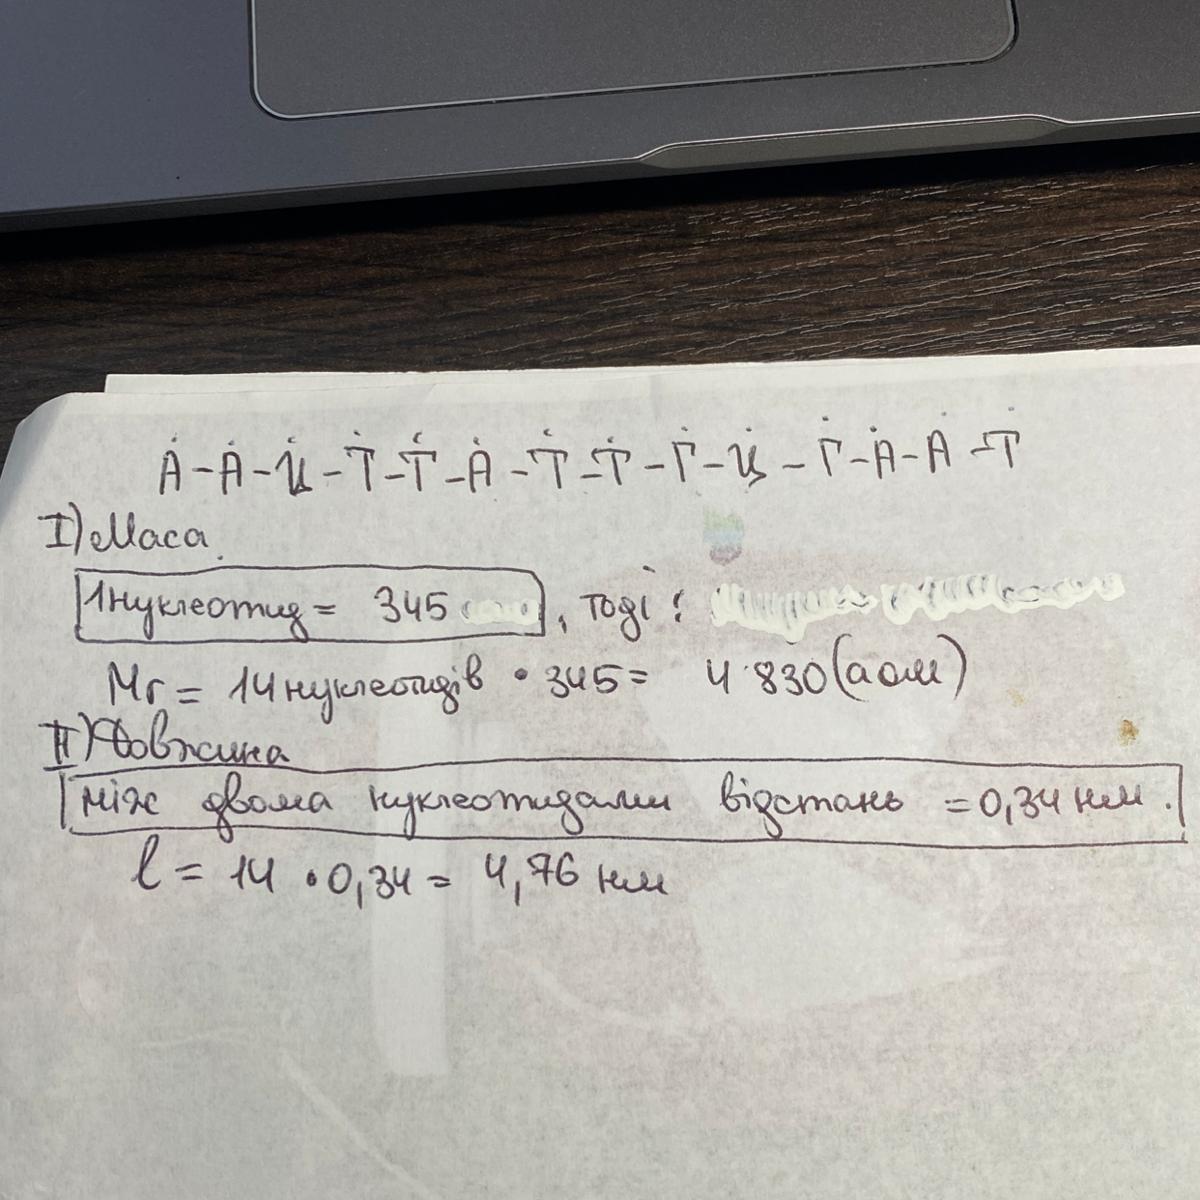 А-А-Ц-Т-Т-А-Т-Т-Г-Ц-Г-А-А-Т
I) Маса
1нуклеотид = 345 , тоді:
Mr = 14 нуклеотидів • 345 = 4 830 (а о м)
II) Довжина
між двома нуклеотидами відстань = 0,34 нм.
l = 14 • 0,34 = 4,76 нм